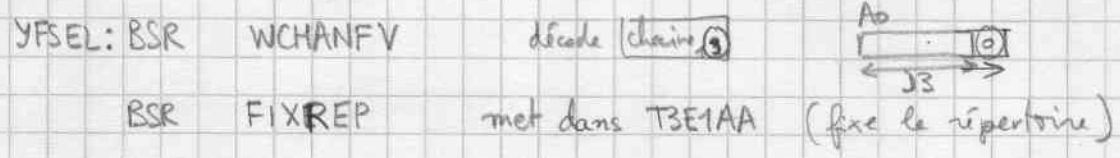 YFSEL: BSR WCHANFV décode chaine, 0 A0
D3
BSR FIXREP met dans T3E1AA (fixe le répertoire)